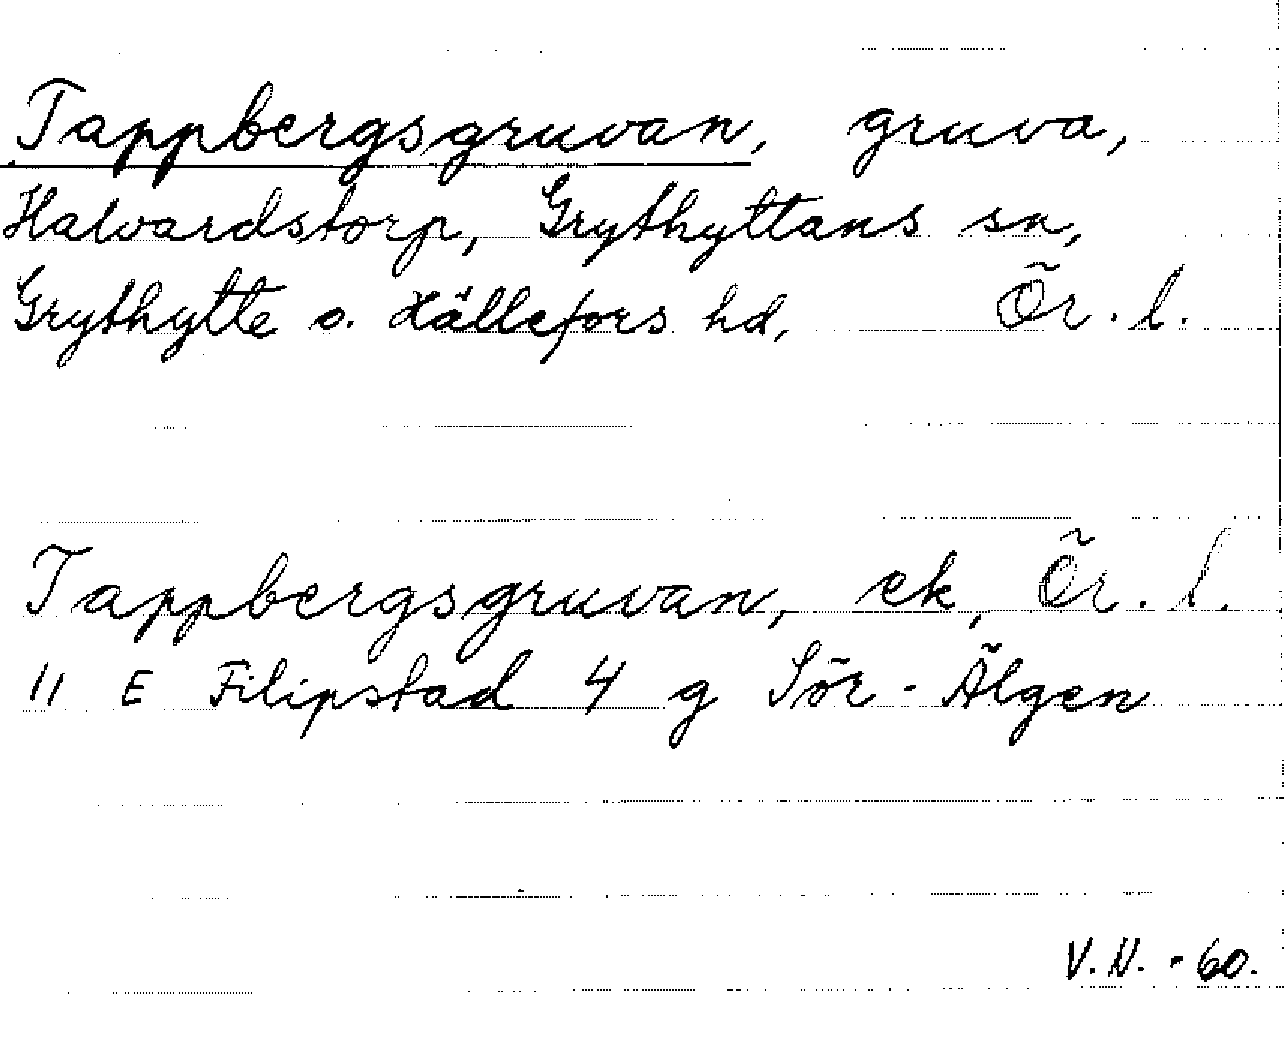 Tappbergsgruvan, gruva,
Halvardstorp, Grythyttans sn,
Grythytte o. Hällefors hd, Ör. l.
Tappbergsgruvan, ek, Ör. l.
11 E Filipstad 4 g Sör-Älgen
V.N. -60.